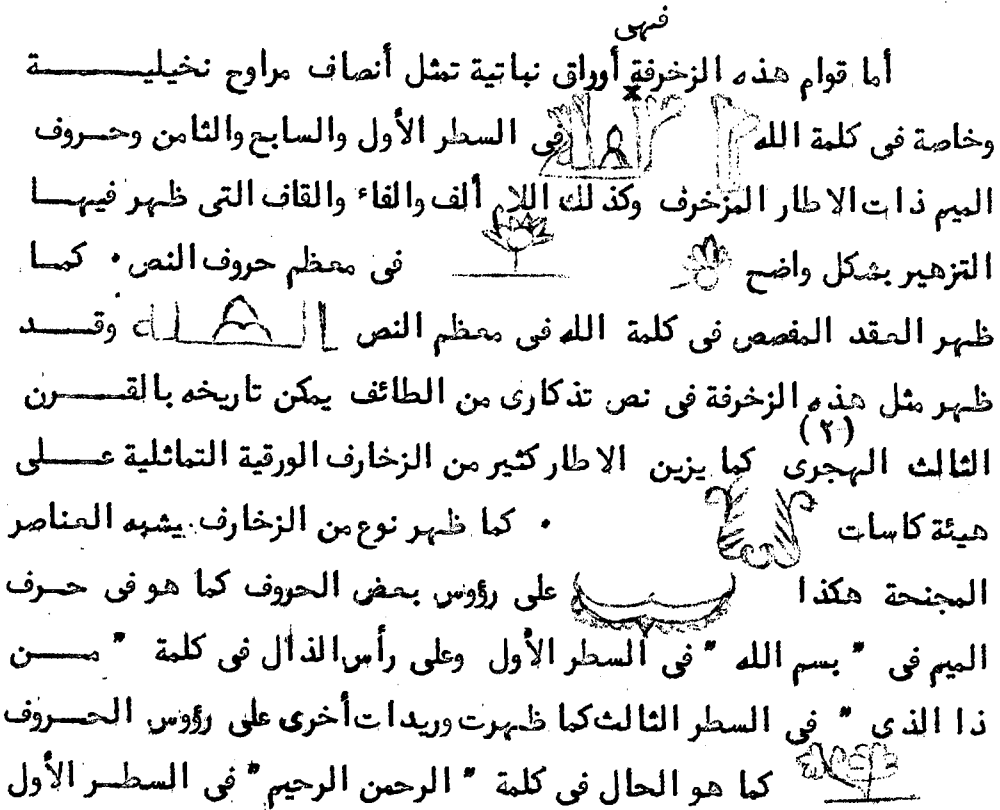 فهى
أما قوام هذه الزخرفة أوراق نباتية تمثل أنصاف مراوح نخيليــــة
وخاصة فى كلمة الله فى السطر الأول والسابع والثامن وحــروف
الميم ذات الاطار المزخرف وكذلك اللام ألف والفاء والقاف التى ظهر فيهــا
التزهير بشكل واضح فى معظم حروف النص ٠ كمــا
ظهر العقد المفصص فى كلمة الله فى معظم النص وقــــد
ظهر مثل هذه الزخرفة فى نص تذكارى من الطائف يمكن تاريخه بالقــــرن
الثالث الهجرى (٢) كما يزين الاطار كثير من الزخارف الورقية التماثلية علــــى
هيئة كاسات ٠ كما ظهر نوع من الزخارف يشبه العناصر
المجنحة هكذا على رؤوس بعض الحروف كما هو فى حــرف
الميم فى " بسم الله " فى السطر الأول وعلى رأس الذال فى كلمة " مــــن
ذا الذى " فى السطر الثالث كما ظهرت وريدات أخرى على رؤوس الحــروف
كما هو الحال فى كلمة " الرحمن الرحيم " فى السطــر الأول